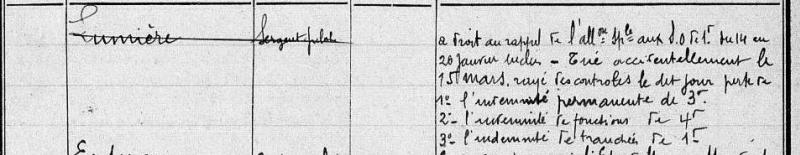 Lumière Sergent pilote a droit au rappel de l'all.on Sp.le aux S.O de 1.f du 14 au
20 Janvier inclus - Tué accidentellement le
15 mars, rayé des controles le dit jour perte de
1º l'indemnité permanente de 3.f
2º- l'indemnité de fonctions de 4.f
3º- l'indemnité de tranchées de 1.f